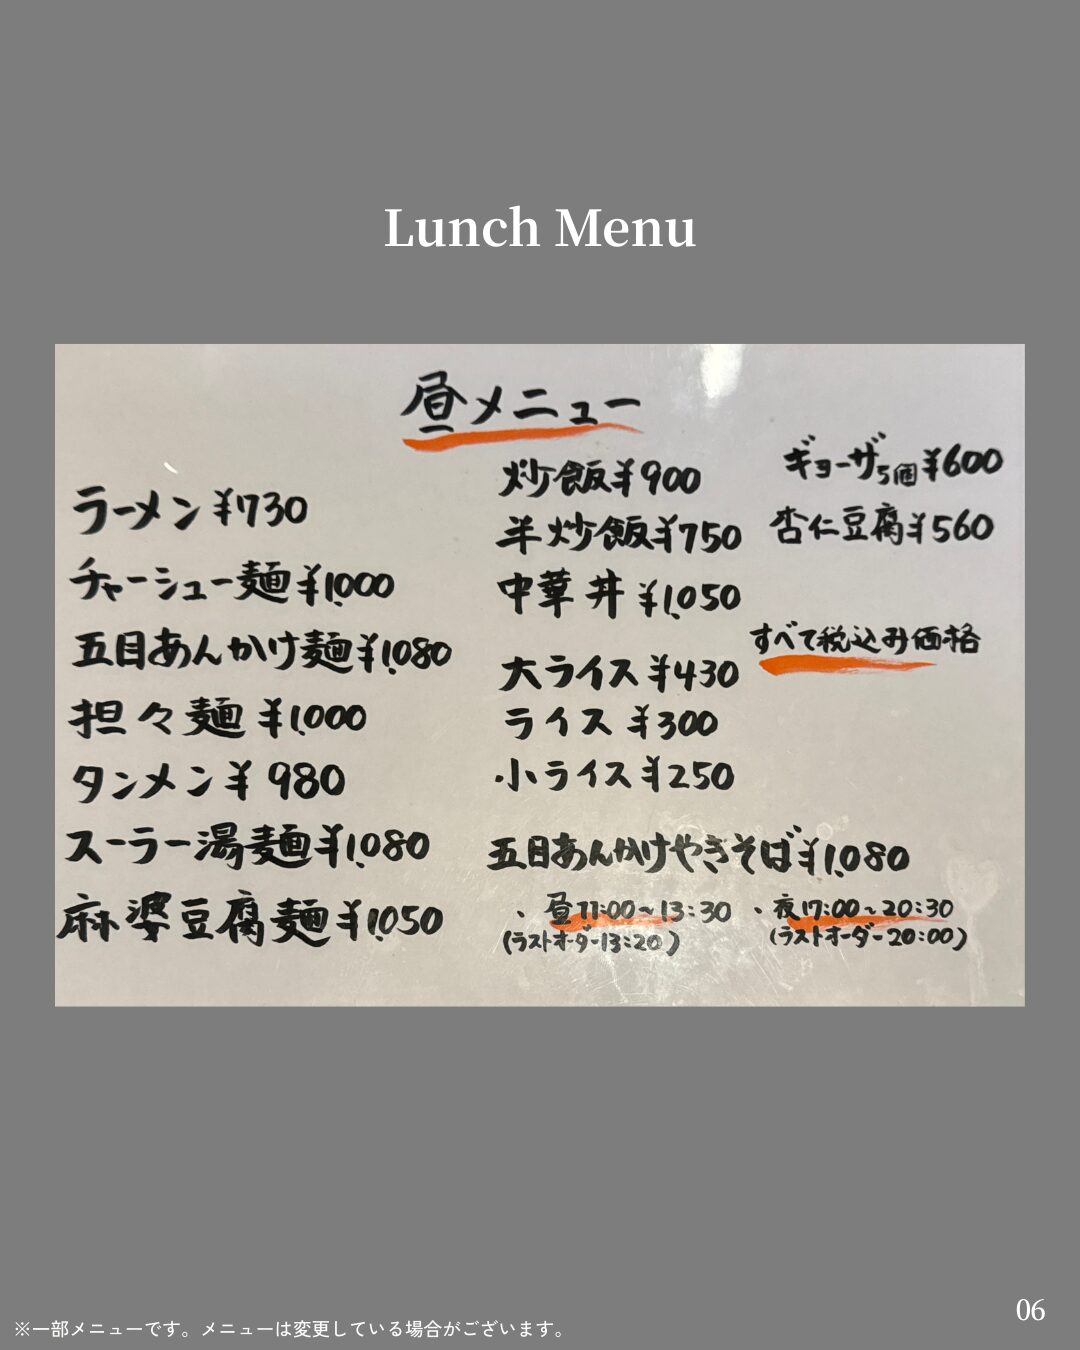 Lunch Menu
昼メニュー
ラーメン ¥730
チャーシュー麺 ¥1.000
五目あんかけ麺 ¥1.080
担々麺 ¥1.000
タンメン ¥980
スーラー湯麺 ¥1.080
麻婆豆腐麺 ¥1.050
炒飯 ¥900
半炒飯 ¥750
中華丼 ¥1.050
大ライス ¥430
ライス ¥300
小ライス ¥250
五目あんかけやきそば ¥1.080
ギョーザ5個 ¥600
杏仁豆腐 ¥560
すべて税込み価格
・昼11:00~13:30
(ラストオーダー13:20)
・夜17:00~20:30
(ラストオーダー20:00)
06
※一部メニューです。メニューは変更している場合がございます。